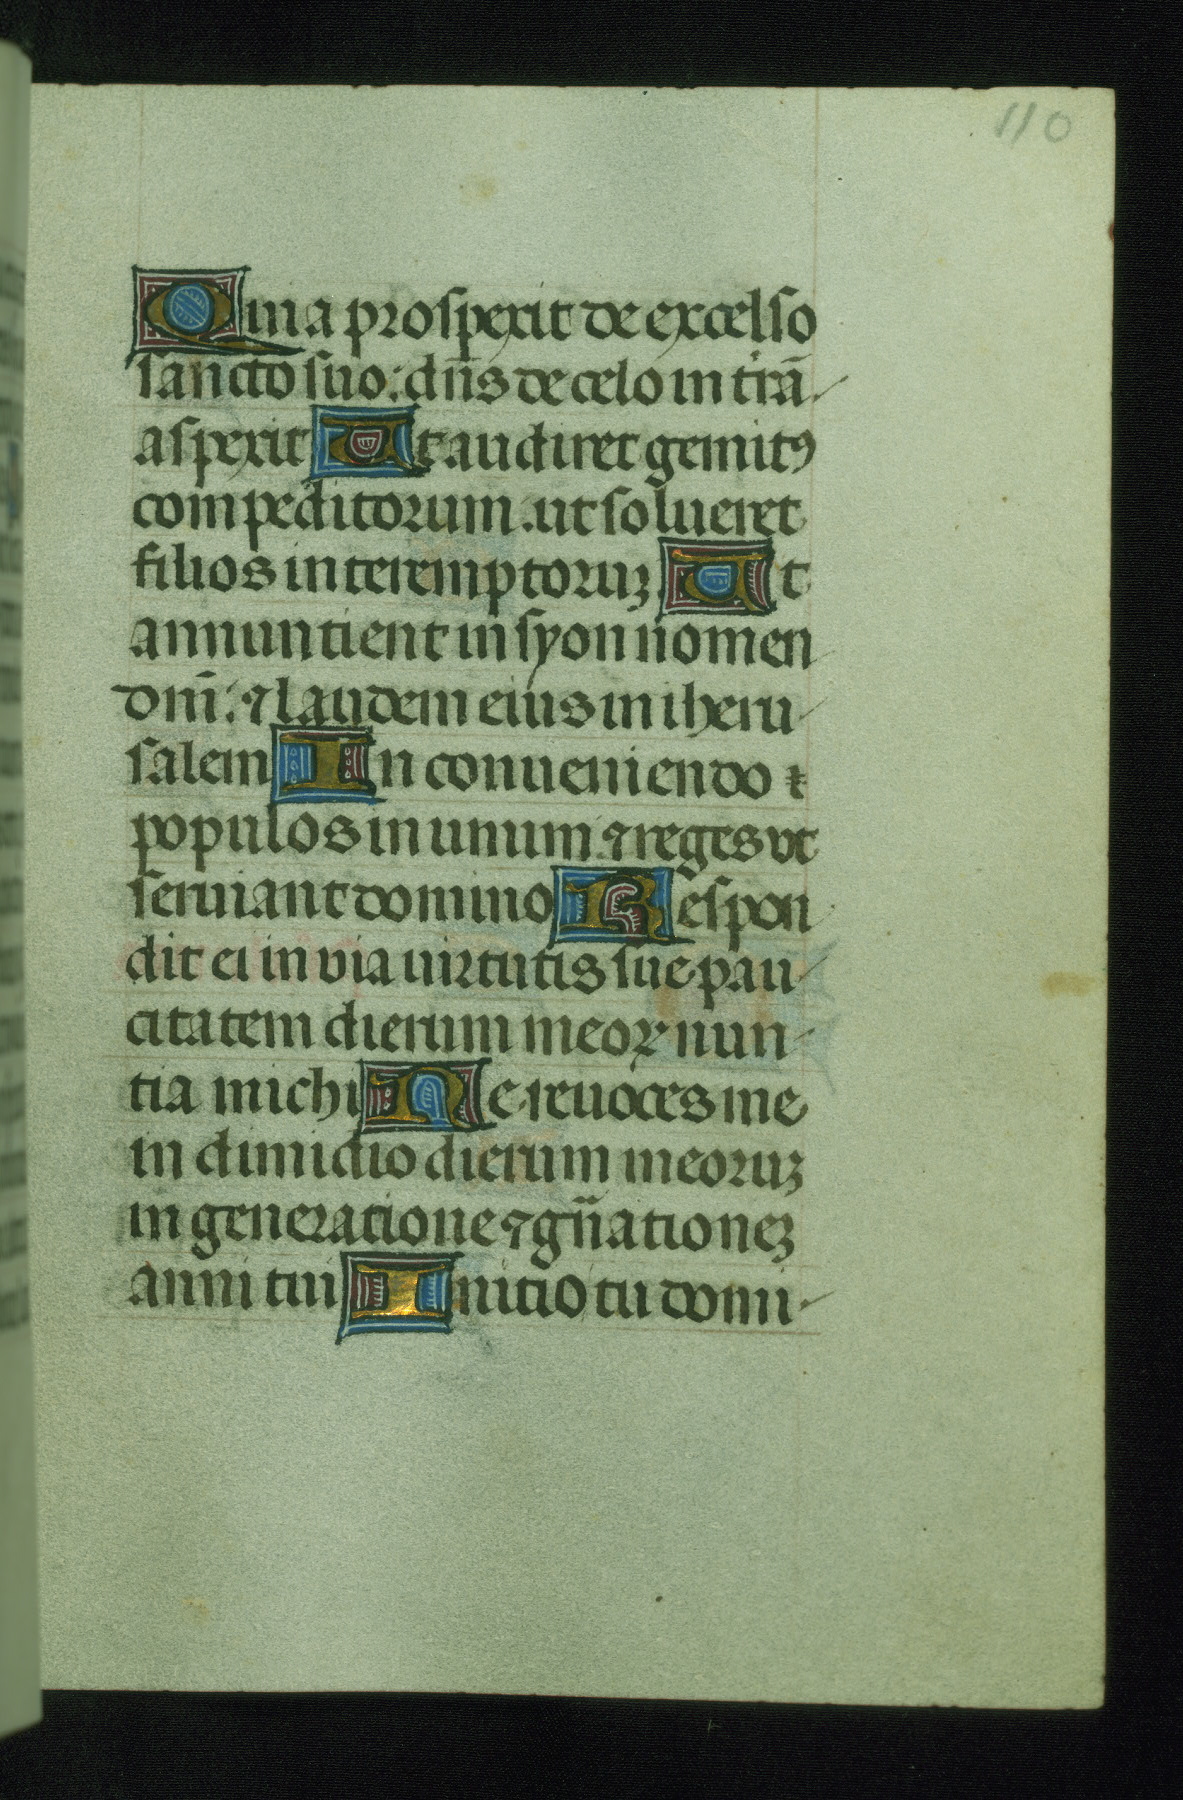 110
Quia prospexit de excelso
sancto suo: dn̄s de celo in t̄rā
aspexit Ut audiret gemitꝰ
compeditorum. ut solueret
filios interemptoruꝫ Ut
annuntient in syon nomen
dom̄: ⁊ laudem eius in iheru
salem In conueniendo
populos in unum. ⁊ reges vt
seruiant domino Respon
dit ei in via uirtutis sue pau
citatem dierum meoꝝ nun
tia michi Ne reuoces me
in dimidio dierum meoruꝫ
in generatione ⁊ gn̄ationeꝫ
anni tui Initio tu domi